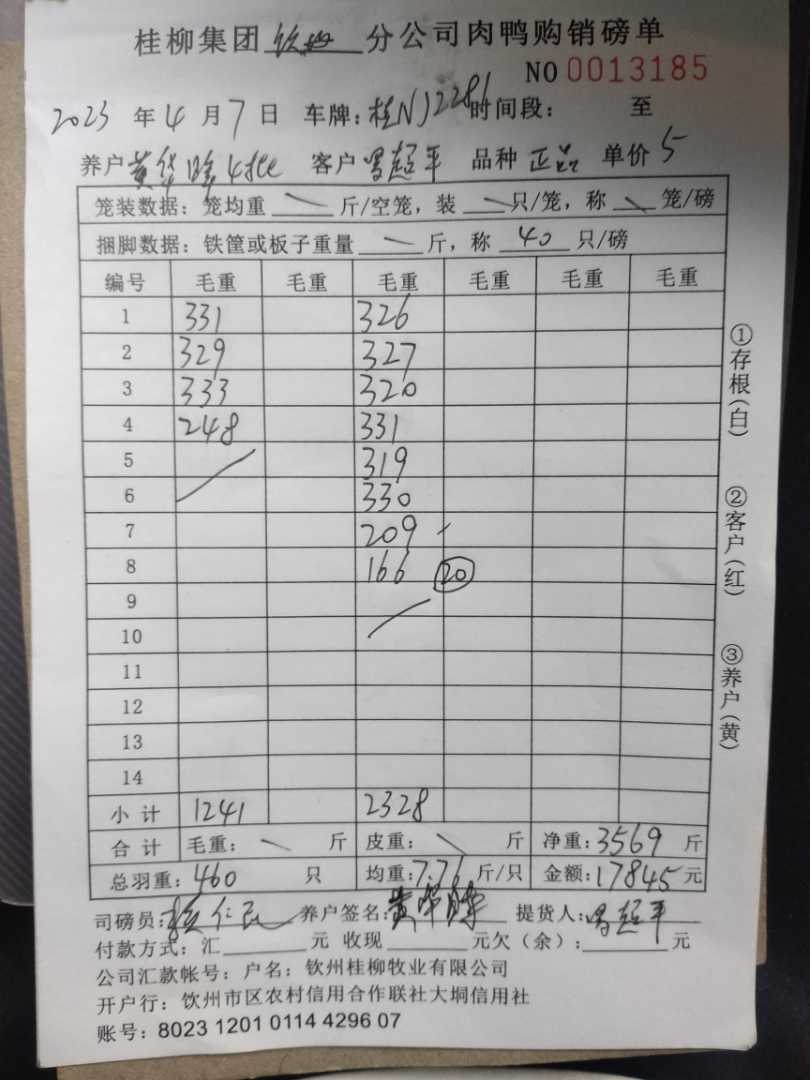 桂柳集团 钦州 分公司肉鸭购销磅单
NO 0013185
2023 年 4 月 7 日 车牌: 桂NJ2281 时间段: 至
养户 黄华 4批 客户 超平 品种 正品 单价 5
笼装数据: 笼均重 斤/空笼, 装 只/笼, 称 笼/磅
捆脚数据: 铁筐或板子重量 斤, 称 40 只/磅
编号 毛重 毛重 毛重 毛重 毛重 毛重
1 331 326
2 329 327
3 333 320
4 248 331
5 319
6 330
7 209
8 166 20
9
10
11
12
13
14
小计 1241 2328
合计 毛重: 斤 皮重: 斤 净重: 3569 斤
总羽重: 460 只 均重: 7.76 斤/只 金额: 17845 元
司磅员: 仁 养户签名: 黄华 提货人: 超平
付款方式: 汇 元 收现 元欠(余): 元
公司汇款帐号: 户名: 钦州桂柳牧业有限公司
开户行: 钦州市区农村信用合作联社大垌信用社
账号: 8023 1201 0114 4296 07
①存根(白)
②客户(红)
③养户(黄)